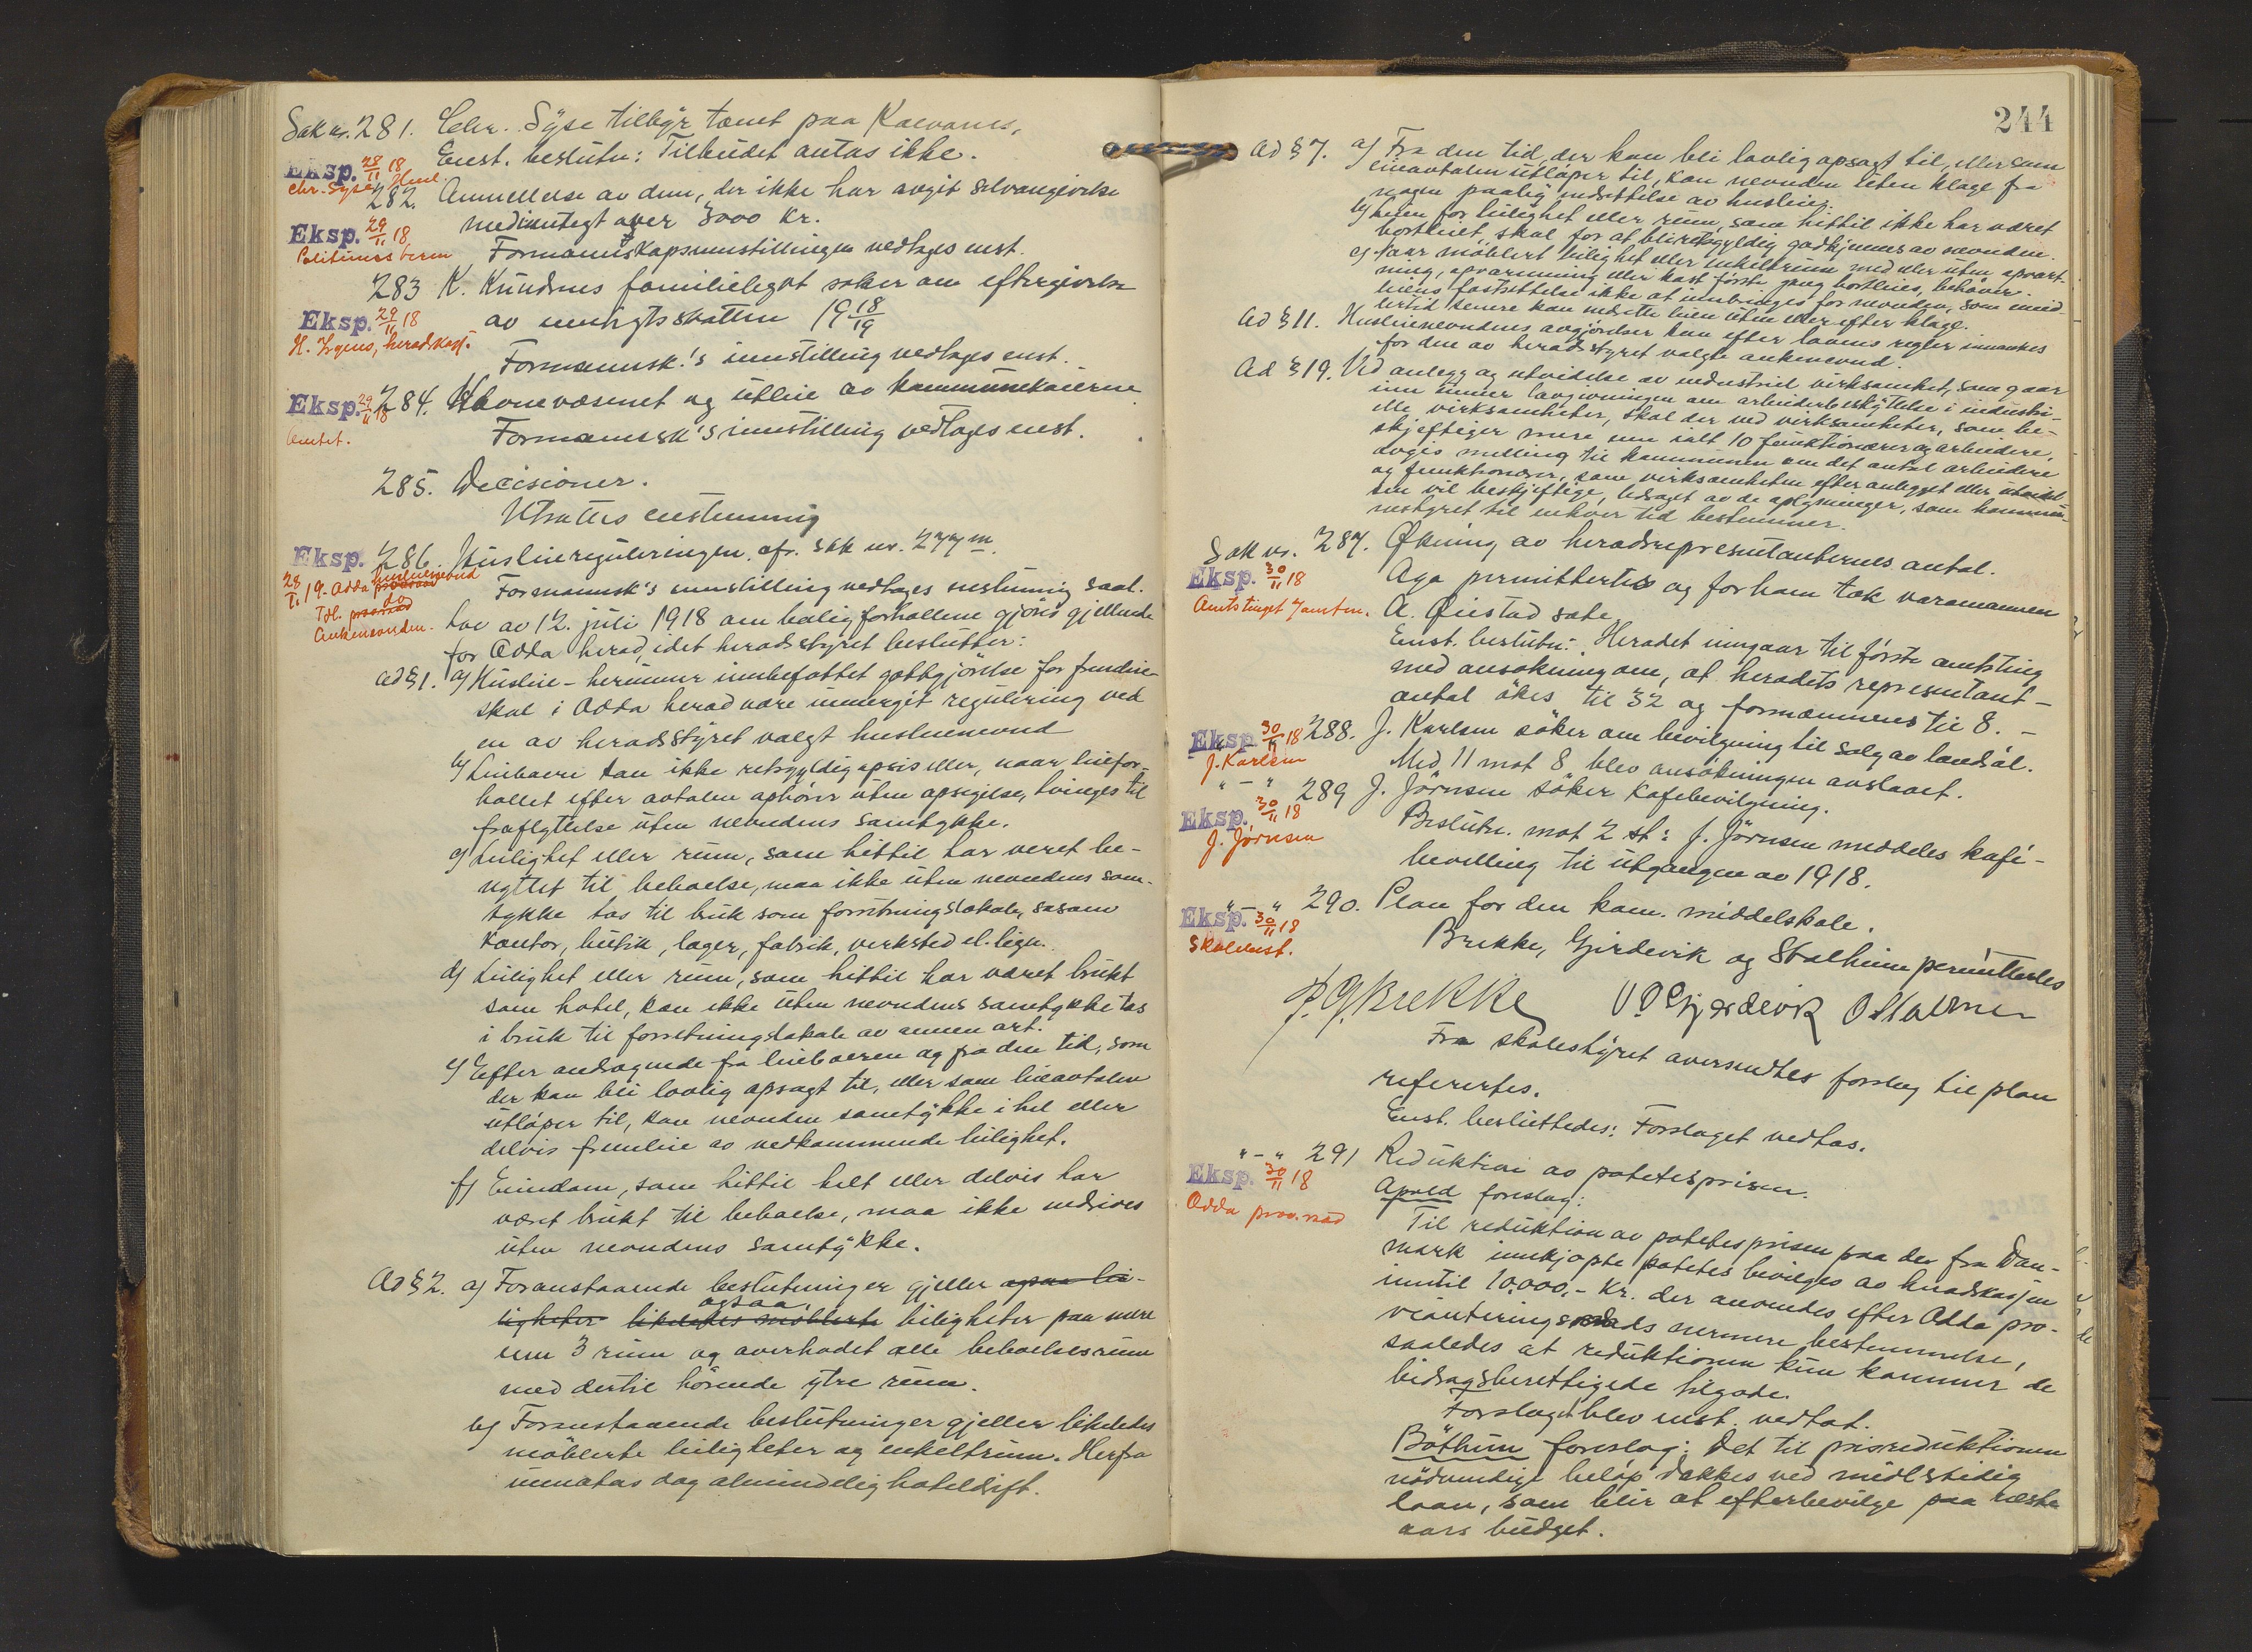 Sak nr. 281. Chr. Syse tilbyr tomt paa Kaevanes,
Enst. beslutn: Tilbudet antas ikke.
Eksp. 28/11 18
Chr. Syse, Henl.
282. Anmeldelse av dem, der ikke har avgit selvangivelse
med inntegt over 3000 kr.
Eksp. 29/11 18
Formannskapsinnstillingen vedtages enst.
283 K. Knudsens familielegat søker om eftergivelse
av inntegtsskatten 19 18/19
Eksp. 29/11 18
H. Lyens, heradskass.
Formannsk.'s innstilling vedtages enst.
Eksp. 29/11 18
284. Havnevæsenet og utleie av kommunekaierne
Amtet.
Formannsk's innstilling vedtages enst.
285. Decisioner.
Utsattes enstemmig
Eksp. 286. Husleiereguleringen, cfr. sak nr. 277 m
28/11 19. Odda husleienevnd
Formannsk's innstilling vedtages enstemmig saal.
Tdl. do
Ankenevnden.
Lov av 12. juli 1918 om boligforhollene gjøres gjellende
for Odda herad, idet heradsstyret beslutter:
ad § 1. a) Husleie - herunner innbefattet gotgjörelse for fremleie
skal i Odda herad være unnergit regulering ved
en av heradsstyret valgt husleienevnd
b) Leieboere kan ikke retsgyldig opsies eller, naar leiefor-
hollet efter avtalen ophører uten opsigelse, tvinges til
fraflyttelse uten nevndens samtykke.
c) Leilighet eller rum, som hittil har veret be-
nyttet til beboelse, maa ikke uten nevndens sam-
tykke tas til bruk som forretningslokale, sasom
kontor, butik, lager, fabrik, verksted el. lign.
d) Leilighet eller rum, som hittil har været brukt
som hotel, kan ikke uten nevndens samtykke tas
i bruk til forretningslokale av annen art.
e) Efter andragende fra leieboeren og fra den tid, som
der kan bli lovlig opsagt til, eller som leieavtalen
utløper til, kan nevnden samtykke i hel eller
delvis fremleie av vedkommende leilighet.
f) Eiendom, som hittil helt eller delvis har
været brukt til beboelse, maa ikke nedrives
uten nevndens samtykke.
Ad § 2. a) Foranstaaende beslutninger gjeller ogsaa lei-
ligheter likeledes møblerte ogsaa leiligheter paa mere
enn 3 rum og overhodet alle beboelsesrum
med dertil hörende ytre rum.
b) Foranstaaende beslutninger gjeller likeledes
möblerte leiligheter og enkeltrum. Herfra
unnatas dog almindelig hoteldrift.
244
Ad § 7. a) Fra den tid, der kan bli lovlig opsagt til, eller som
leieavtalen utløper til, kan nevnden uten klage fra
nogen paalig nedsettelse av husleie.
b) Leien for leilighet eller rum, som hittil ikke har været
bortleiet skal for at bli retsgyldig godkjennes av nevnden.
c) Naar möblert leilighet eller enkeltrum med eller uten opvart-
ning, opvarmning eller kost förste gang bortleies, behøver
leiens fastsettelse ikke at innbringes for nevnden, som imid-
lertid senere kan nedsette leien uten eller efter klage.
Ad § 11. Husleienevndens avgjörelser kan efter lovens regler innankes
for den av heradsstyret valgte ankenevnd.
Ad § 19. Ved anlegg og utvidelse av industriel virksamhet, som gaar
inn unner lovgivningen om arbeiderbeskyttelse i industri-
elle virksomheter, skal der ved virksomheter, som be-
skjeftiger mere enn ialt 10 funktionærer og arbeidere,
avgis melling til kommunen om det antal arbeidere
og funktionærer, som virksomheten efter anlegget eller utvidel-
sen vil beskjeftige, ledsaget av de oplysninger, som kommun-
nestyret til enhver tid bestemmer.
Sak nr. 287. Økning av heradsrepresentanternes antal.
Eksp. 30/11 18
Aga permittertes og for ham tok varamannen
Amtstinget
A. Øiestad sæte
Enst. beslutn: Heradet inngaar til förste amtsting
med ansökning om, at heradets representant-
antal ökes til 32 og formænnenes til 8. -
Eksp 30/11 18 288. J. Karlsen söker om bevilgning til salg av landsöl.
J. Karlsen
Med 11 mot 8 blev ansökningen avslaaet.
" - " 289 J. Jörnsen söker kafebevilgning.
Eksp. 30/11 18
J. Jørnsen
Beslutn. mot 2 st: J. Jörnsen meddeles kafé-
bevilling til utgangen av 1918.
" - " 290. Plan for den kom. middelskole.
Eksp. 30/11 18
Skolebest.
Brekke, Gjerdevik og Stalheim permittertes
P. G. Brekke O. Gjerdevik O Stalheim
Fra skolestyret oversendtes forslag til plan
refereres.
Enst. besluttedes: Forslaget vedtas.
" - " 291 Reduktion av potetesprisen.
Eksp. 30/11 18
Apold foreslog:
Odda prov. raad
Til reduktion av potetesprisen paa der fra Dan-
mark innkjøpte potetes bevilges av heradskassen
inntil 10,000.- kr. der anvendes efter Odda pro-
vianteringsraads nermere bestemmelse,
saaledes at reduktionen kun kommer de
bidragsberettigede tilgode.
Forslaget blev enst. vedtat.
Böthun foreslog: Det til prisreduktionen
nödvendige belöp dækkes ved midlertidig
laan, som blir at efterbevilge paa næste
aars budget.